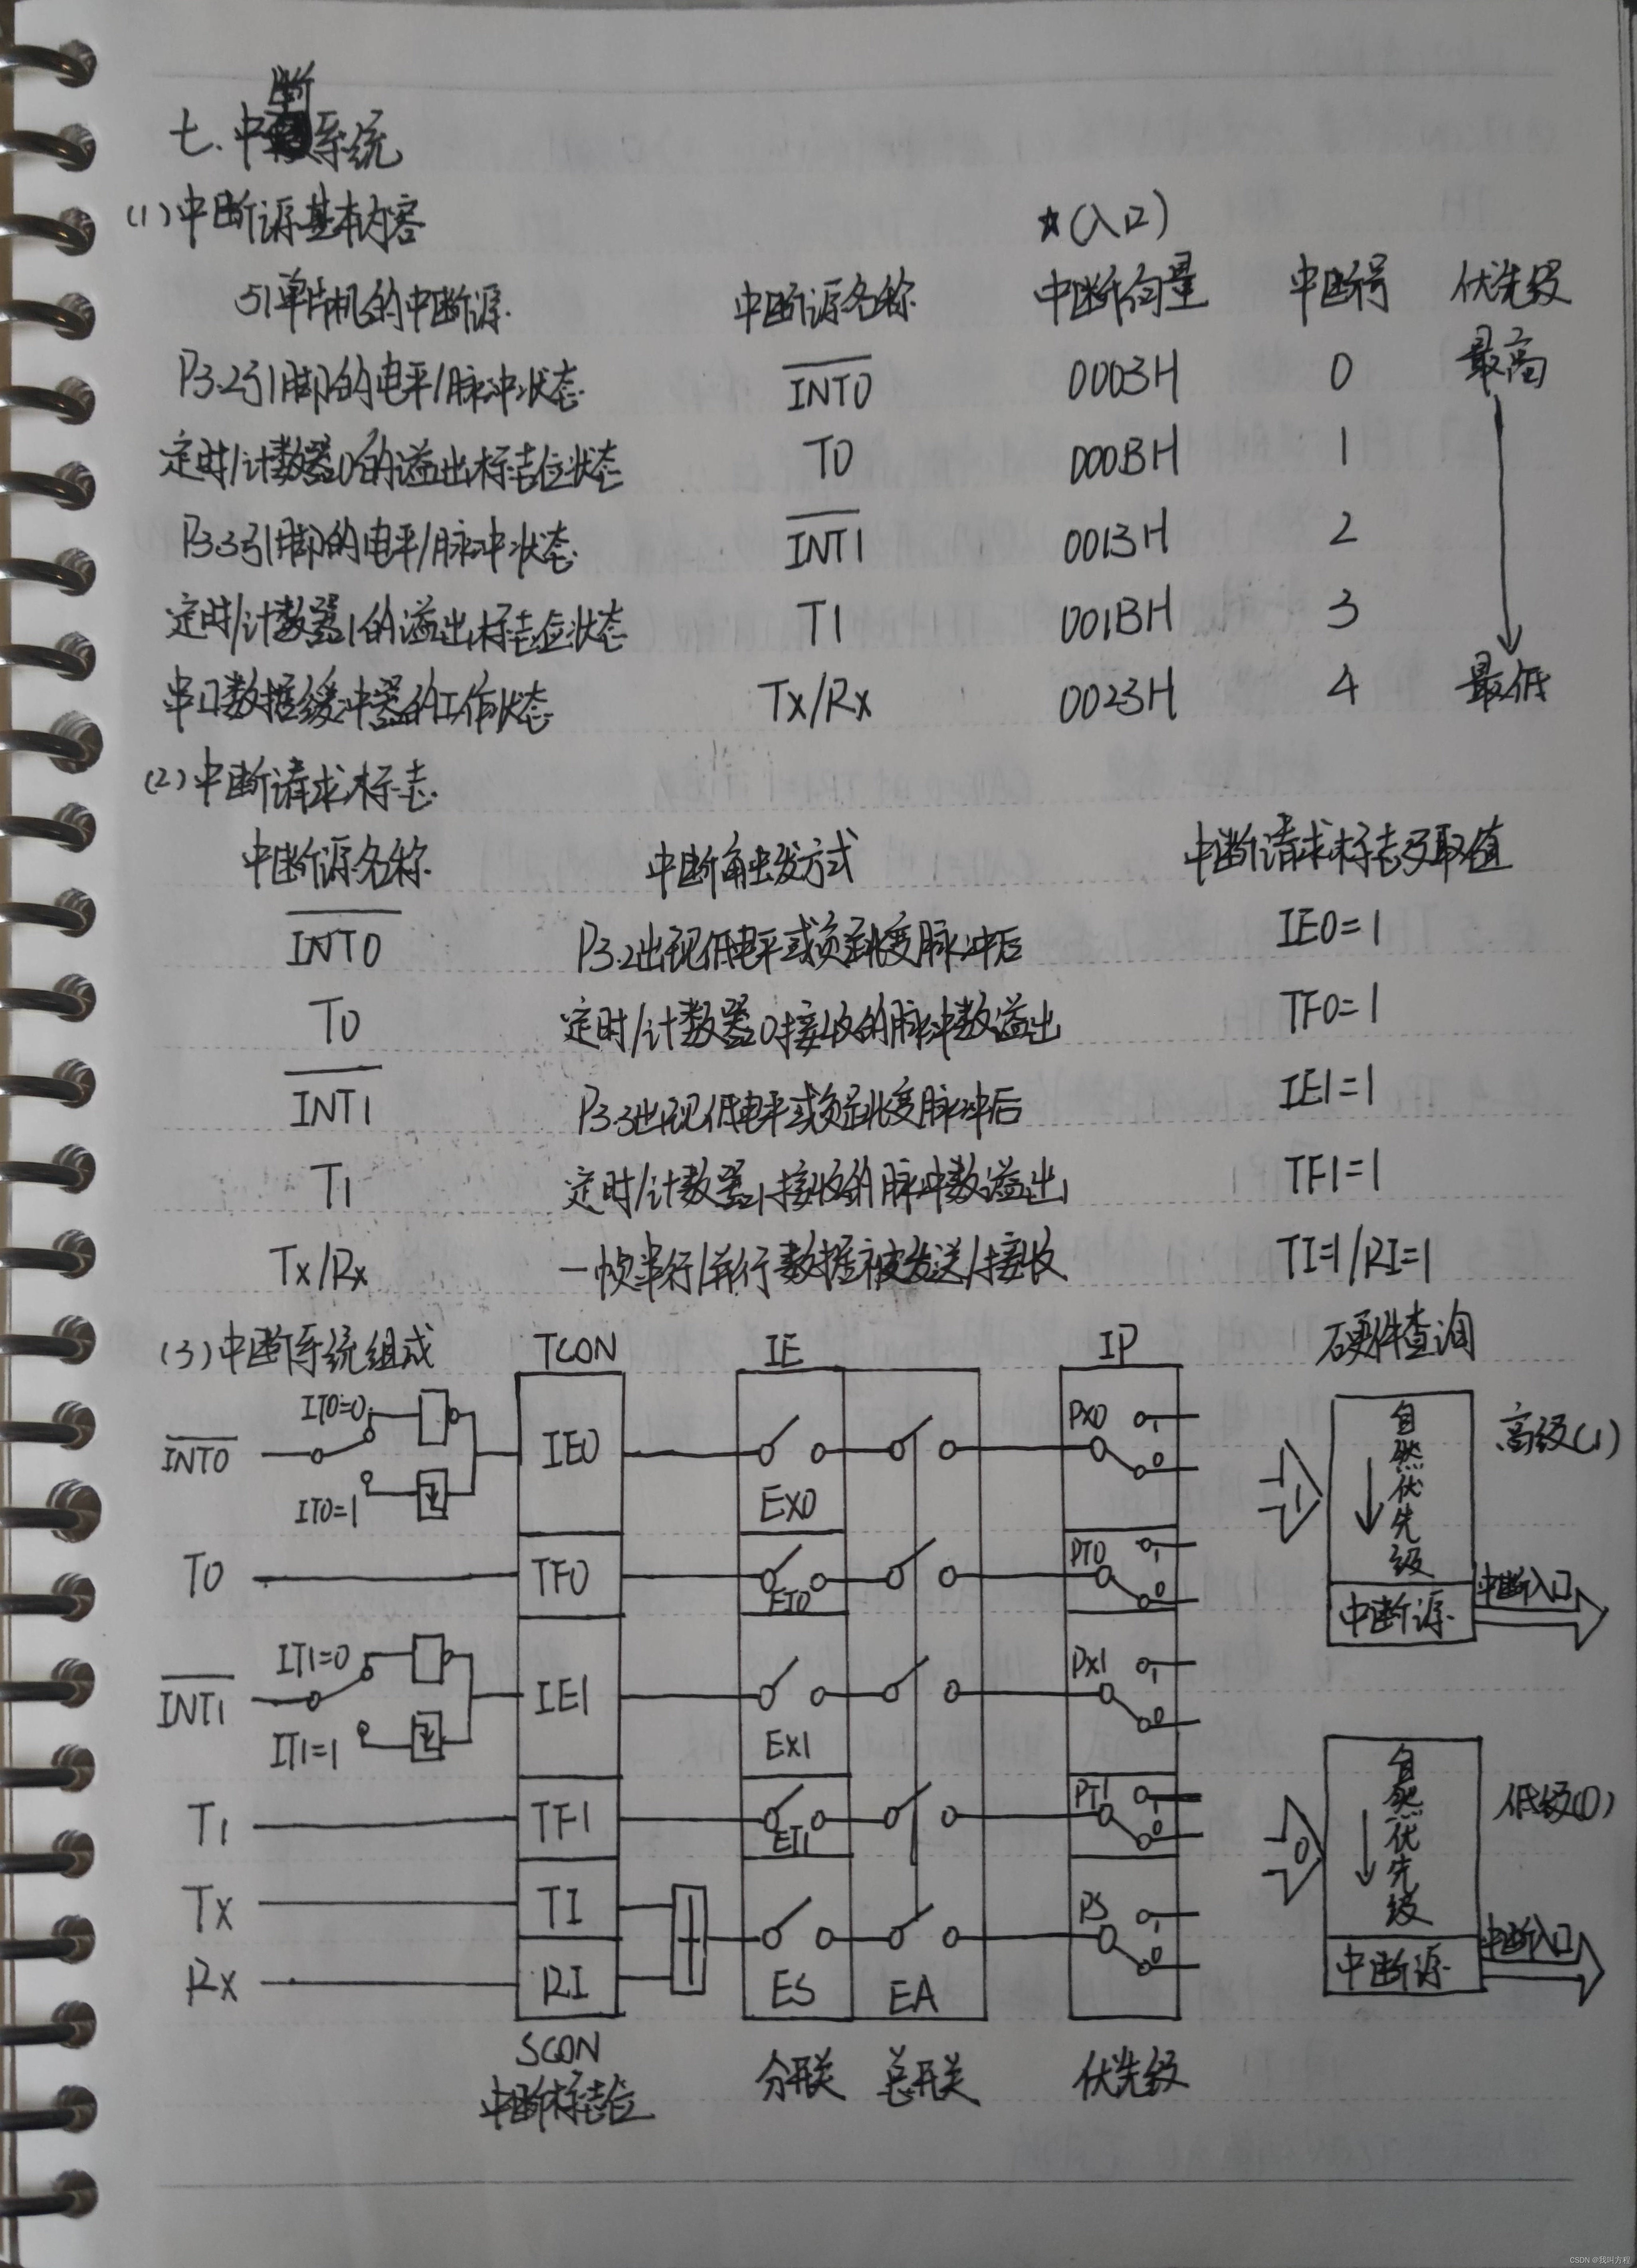 七.中断系统
(1)中断源基本内容
☆(入口)
51单片机的中断源. 中断源名称 中断向量 中断号 优先级
P3.2引脚的电平/脉冲状态 INT0 0003H 0 最高
定时/计数器0的溢出标志位状态 T0 000BH 1
P3.3引脚的电平/脉冲状态 INT1 0013H 2
定时/计数器1的溢出标志位状态 T1 001BH 3
串口数据缓冲器的工作状态 Tx/Rx 0023H 4 最低
(2)中断请求标志.
中断源名称 中断触发方式 中断请求标志及取值
INT0 P3.2出现低电平或负跳变脉冲后 IE0=1
T0 定时/计数器0接收的脉冲数溢出 TF0=1
INT1 P3.3出现低电平或负跳变脉冲后 IE1=1
T1 定时/计数器1接收的脉冲数溢出 TF1=1
Tx/Rx 一帧串行/并行数据被发送/接收 TI=1/RI=1
(3)中断系统组成 TCON IE IP 硬件查询
INT0 IT0=0 IT0=1 IE0 EX0 PX0 1 0
1 自然优先级 高级(1)
T0 TF0 ET0 PT0 1 0
中断源 中断入口
INT1 IT1=0 IT1=1 IE1 EX1 PX1 1 0
T1 TF1 ET1 PT1 1 0
0 自然优先级 低级(0)
Tx TI PS 1 0
Rx RI ES EA
中断源 中断入口
SCON
中断标志位 分开关 总开关 优先级
CSDN @我叫方程